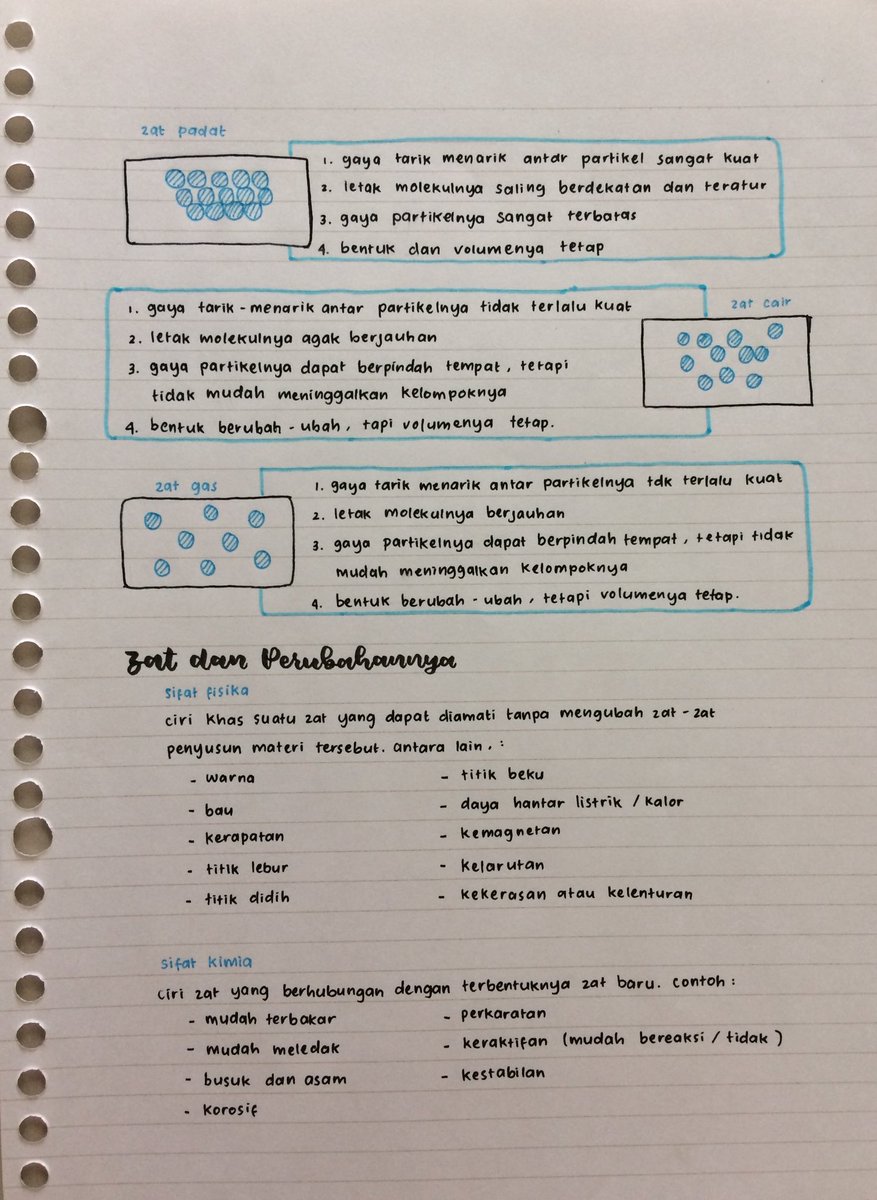 zat padat
1. gaya tarik menarik antar partikel sangat kuat
2. letak molekulnya saling berdekatan dan teratur
3. gaya partikelnya sangat terbatas
4. bentuk dan volumenya tetap
zat cair
1. gaya tarik - menarik antar partikelnya tidak terlalu kuat
2. letak molekulnya agak berjauhan
3. gaya partikelnya dapat berpindah tempat, tetapi
tidak mudah meninggalkan kelompoknya
4. bentuk berubah - ubah, tapi volumenya tetap.
zat gas
1. gaya tarik menarik antar partikelnya tdk terlalu kuat
2. letak molekulnya berjauhan
3. gaya partikelnya dapat berpindah tempat, tetapi tidak
mudah meninggalkan kelompoknya
4. bentuk berubah - ubah, tetapi volumenya tetap.
Zat dan Perubahannya
sifat fisika
ciri khas suatu zat yang dapat diamati tanpa mengubah zat - zat
penyusun materi tersebut. antara lain. :
- warna
- bau
- kerapatan
- titik lebur
- titik didih
- titik beku
- daya hantar listrik / kalor
- kemagnetan
- kelarutan
- kekerasan atau kelenturan
sifat kimia
ciri zat yang berhubungan dengan terbentuknya zat baru. contoh :
- mudah terbakar
- mudah meledak
- busuk dan asam
- korosif
- perkaratan
- keraktifan (mudah bereaksi / tidak)
- kestabilan